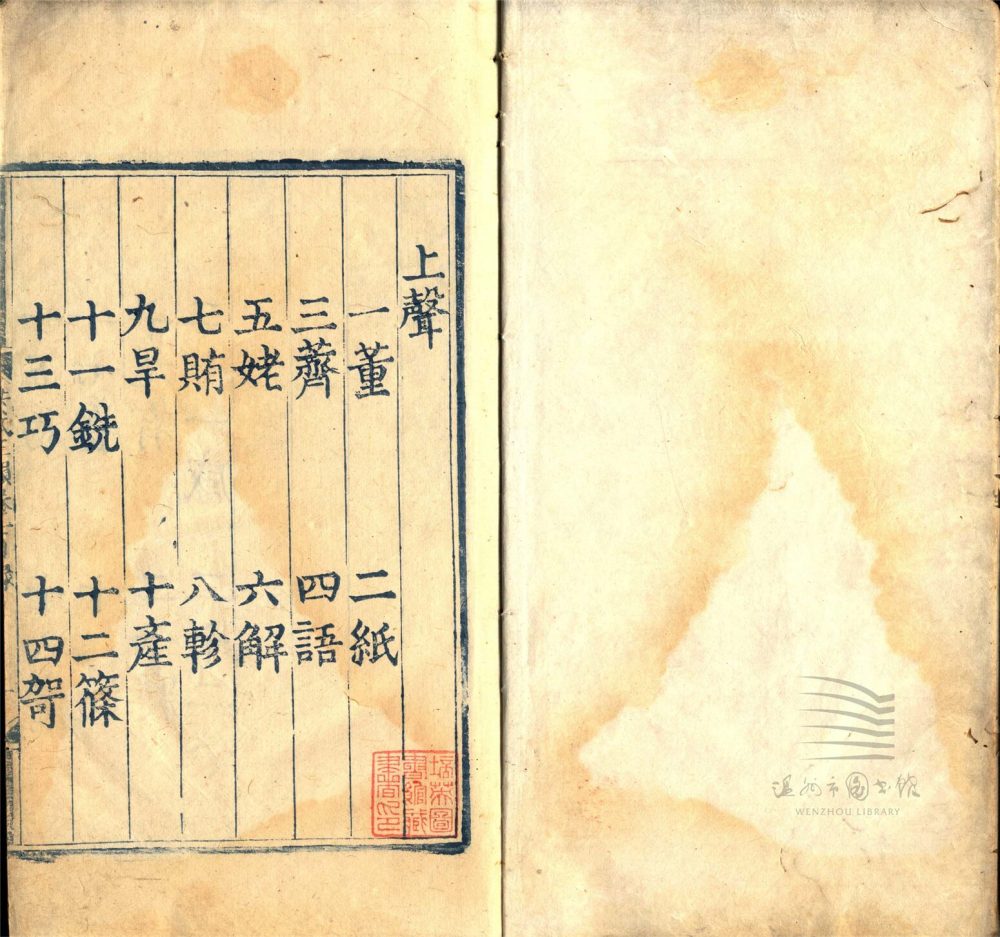 上聲
一董 二紙
三薺 四語
五姥 六解
七賄 八軫
九旱 十產
十一銑 十二篠
十三巧 十四哿
溫州市圖書館
WENZHOU LIBRARY